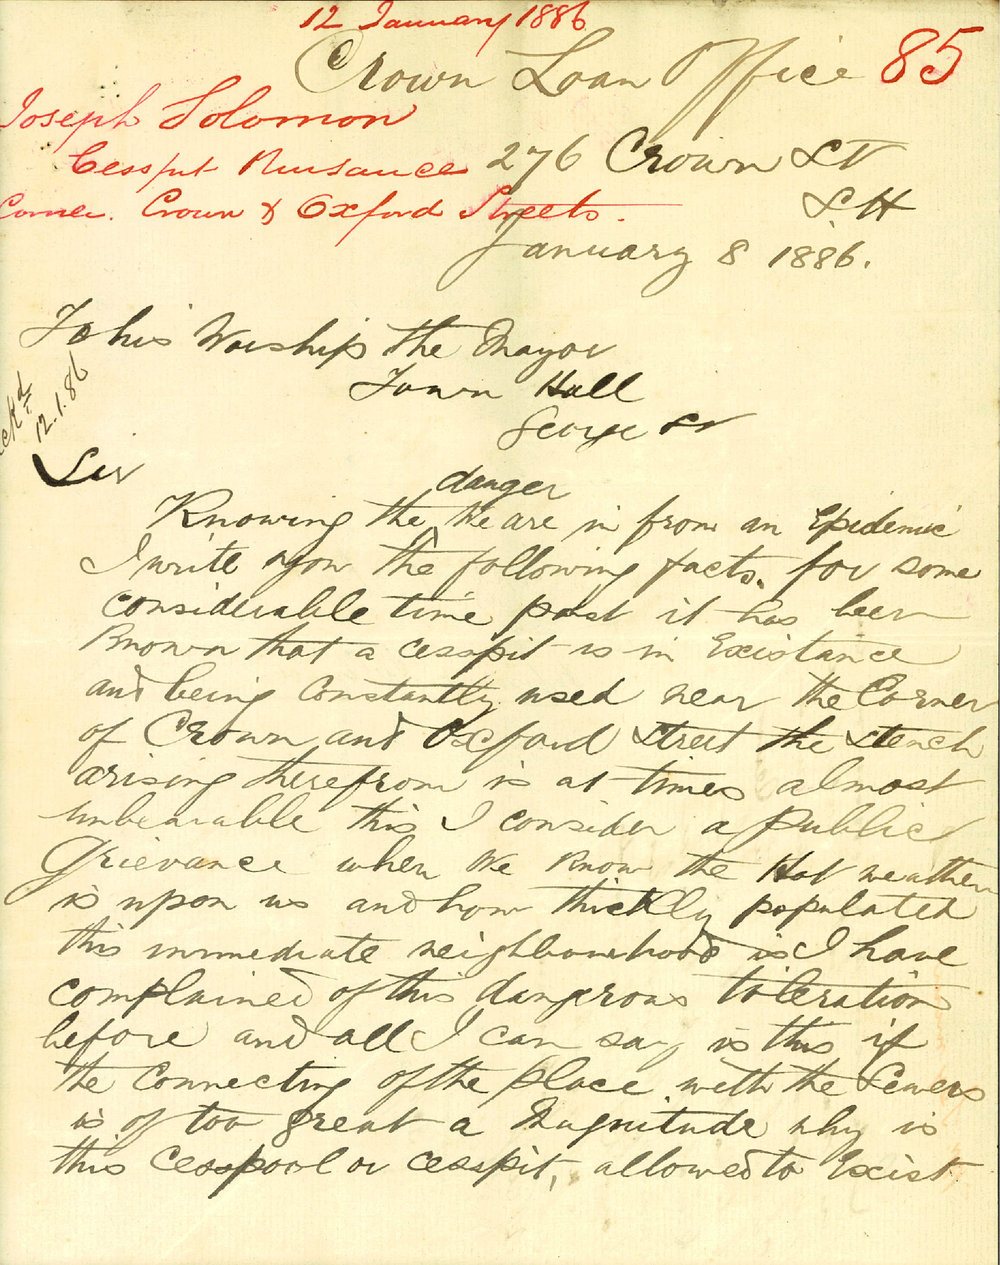 12 January 1886
Crown Loan Office 85
Joseph Solomon
Cesspit Nuisance 276 Crown St
Corner. Crown & Oxford Streets.
S H
January 8 1886.
To his Worship the Mayor
Town Hall
George St
Ackd
12.1.86
Sir
danger
Knowing the We are in from an Epidemic
I write upon the following facts. for some
considerable time past it has been
Known that a cesspit is in Existance
and being Constantly used near the Corner
of Crown and Oxford Street the Stench
arising therefrom is at times almost
unbearable this I consider a public
Grievance when We Know the Hot weather
is upon us and how thickly populated
this immediate neighbourhood is I have
complained of this dangerous toleration
before and all I can say is this if
the Connecting of the place with the Sewers
is of too great a Magnitude why is
this Cesspool or cesspit, allowed to Exist